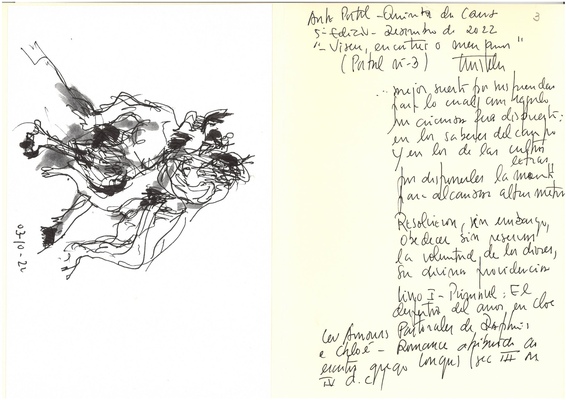 03-10-22
3
Ante Portal - Quinta da Cruz
5ª Edição - Dezembro de 2022
"- Viseu, encontrei o meu
(Portal nº 3)
... mejor suerte por sus prendas
para lo cual
su crianza fue dispuesta:
en los saberes del campo
y en los de las cultas
letras,
por disponerles la mente
para alcanzar altas metas
Resolvieron, sin embargo,
obedecer sin reservas
la voluntad de los dioses,
su divina providencia
Livro I - Primavera: El
despertar del amor en Cloe
Les Amours Pastorales de Daphnis
e Chloé - Romance atribuído ao
escritor grego Longus (sec III ou
IV d.C)